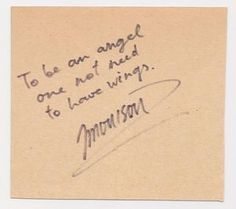 To be an angel
one not need
to have wings.